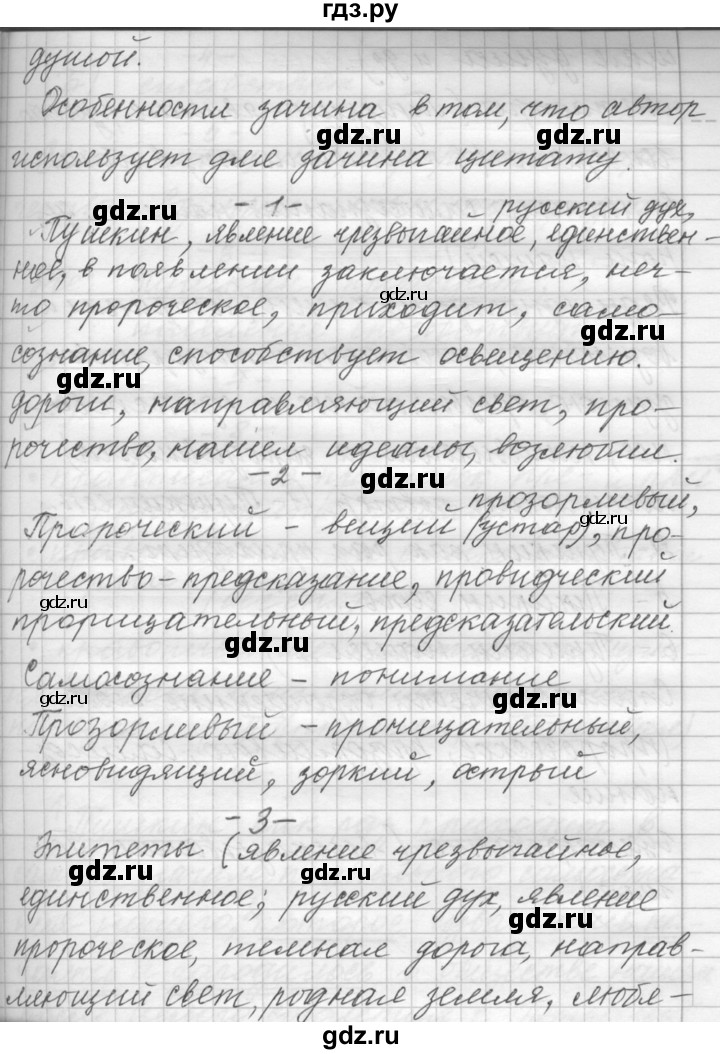 гдз.ру
душой.
Особенности зачина в том, что автор
gdz.ru gdz.ru
использует для зачина цитату.
- 1 - русский дух,
gdz.ru
Пушкин, явление чрезвычайное, единствен-
ное, в появлении заключается, неч-
gdz.ru
то пророческое, приходит, само-
gdz.ru
сознание, способствует освещению.
gdz.ru
дороги, направляющий свет, про-
рочество, нашел идеалы, возлюбил.
- 2 -
gdz.ru
прозорливый,
Пророческий - вещий (устар), про-
gdz.ru
рочество - предсказание, провидческий
gdz.ru
прорицательный, предсказательский.
gdz.ru
Самосознание - понимание
gdz.ru gdz.ru
Прозорливый - проницательный,
ясновидящий, зоркий, острый
- 3 -
Эпитеты (явление чрезвычайное,
gdz.ru gdz.ru
единственное; русский дух, явление
gdz.ru
пророческое, темная дорога, направ-
ляющий свет, родная земля, любя-
gdz.ru